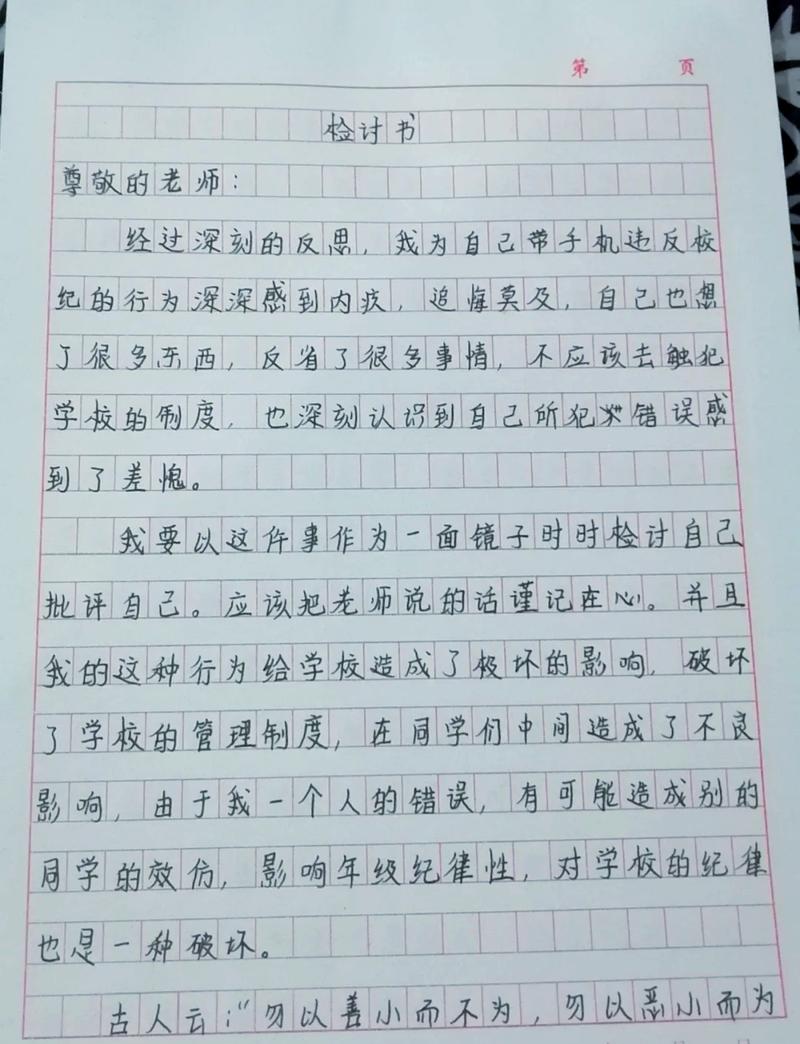 第 页
检讨书
尊敬的老师：
经过深刻的反思，我为自己带手机违反校
纪的行为深深感到内疚，追悔莫及，自己也想
了很多东西，反省了很多事情，不应该去触犯
学校的制度，也深刻认识到自己所犯错误感
到了差愧。
我要以这件事作为一面镜子时时检讨自己
批评自己。应该把老师说的话谨记在心。并且
我的这种行为给学校造成了极坏的影响，破坏
了学校的管理制度，在同学们中间造成了不良
影响，由于我一个人的错误，有可能造成别的
同学的效仿，影响年级纪律性，对学校的纪律
也是一种破坏。
古人云："勿以善小而不为，勿以恶小而为